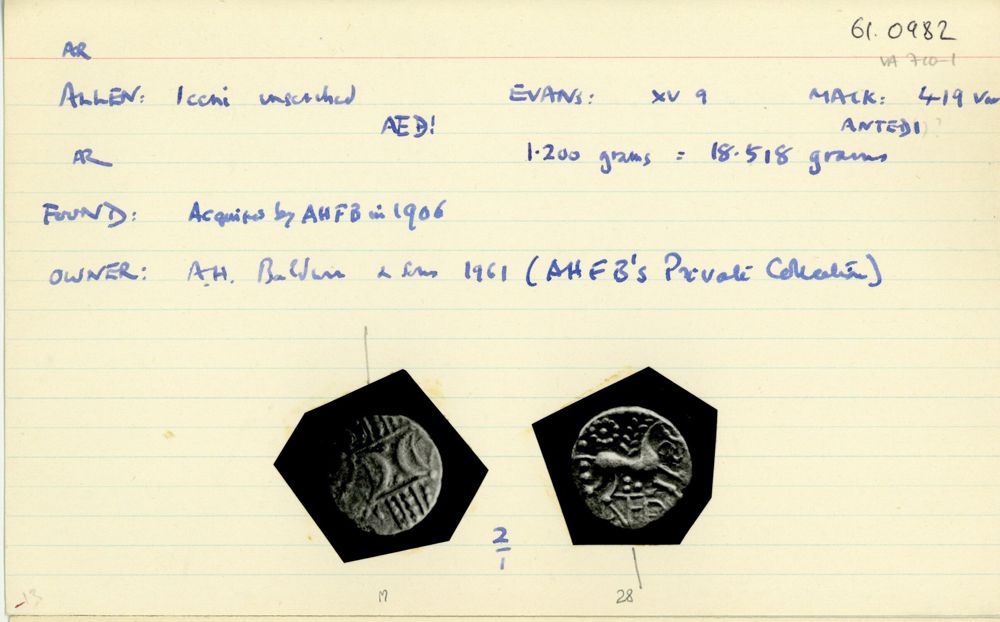 61.0982
AR
VA 710-1
ALLEN: Iceni unscribed EVANS: XV 9 MACK: 419 Var
AED! ANTEDI)?
AR 1.200 grams = 18.518 grams
FOUND: Acquired by AHFB in 1906
OWNER: A.H. Baldwin & Sons 1961 (AHFB's Private Collection)
2
1
13 M 28